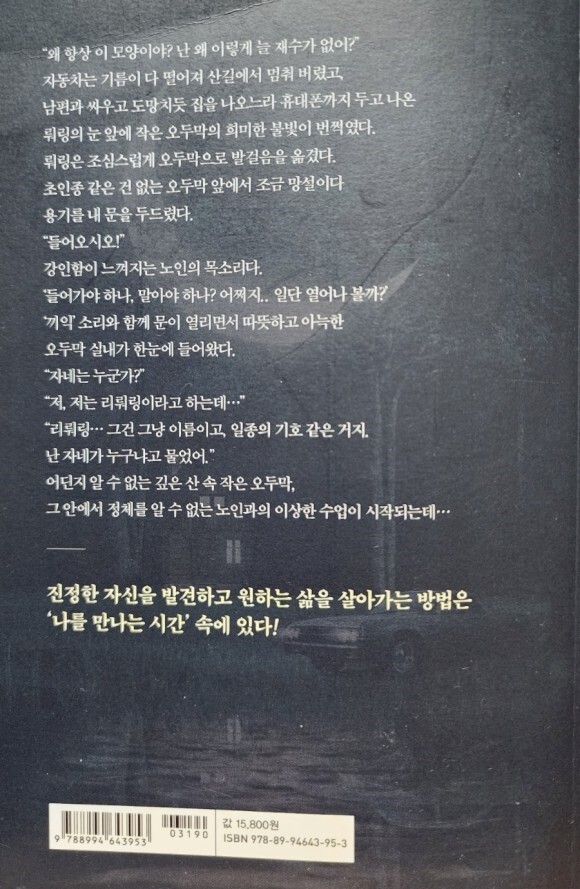 “왜 항상 이 모양이야? 난 왜 이렇게 늘 재수가 없어?”
자동차는 기름이 다 떨어져 산길에서 멈춰 버렸고,
남편과 싸우고 도망치듯 집을 나오느라 휴대폰까지 두고 나온
뤄링의 눈 앞에 작은 오두막의 희미한 불빛이 번쩍였다.
뤄링은 조심스럽게 오두막으로 발걸음을 옮겼다.
초인종 같은 건 없는 오두막 앞에서 조금 망설이다
용기를 내 문을 두드렸다.
“들어오시오!”
강인함이 느껴지는 노인의 목소리다.
‘들어가야 하나, 말아야 하나? 어쩌지.. 일단 열어나 볼까?’
‘끼익’ 소리와 함께 문이 열리면서 따뜻하고 아늑한
오두막 실내가 한눈에 들어왔다.
“자네는 누군가?”
“저, 저는 리뤄링이라고 하는데…”
“리뤄링… 그건 그냥 이름이고, 일종의 기호 같은 거지.
난 자네가 누구냐고 물었어.”
어딘지 알 수 없는 깊은 산 속 작은 오두막,
그 안에서 정체를 알 수 없는 노인과의 이상한 수업이 시작되는데…
진정한 자신을 발견하고 원하는 삶을 살아가는 방법은
‘나를 만나는 시간’ 속에 있다!
9 788994 643953
03190
값 15,800원
ISBN 978-89-94643-95-3